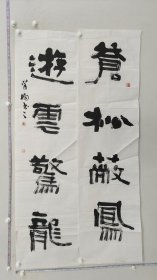 蒼松蔽鳳
遊雲驚龍